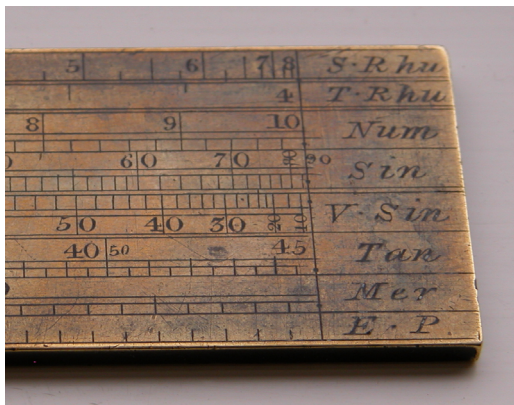 5 6 7 8 S·Rhu
4 T·Rhu
8 9 10 Num
60 70 90 Sin
50 40 30 20 10 V·Sin
40 50 45 Tan
Mer
E·P.